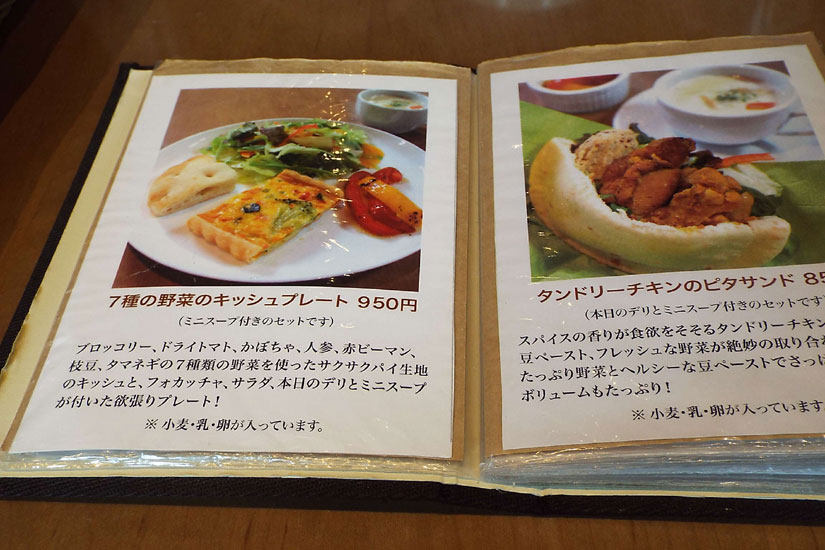 7種の野菜のキッシュプレート 950円
(ミニスープ付きのセットです)
ブロッコリー、ドライトマト、かぼちゃ、人参、赤ピーマン、
枝豆、タマネギの7種類の野菜を使ったサクサクパイ生地
のキッシュと、フォカッチャ、サラダ、本日のデリとミニスープ
が付いた欲張りプレート!
※ 小麦・乳・卵が入っています。
タンドリーチキンのピタサンド 85
(本日のデリとミニスープ付きのセットです
スパイスの香りが食欲をそそるタンドリーチキン
豆ペースト、フレッシュな野菜が絶妙の取り合
たっぷり野菜とヘルシーな豆ペーストでさっ
ボリュームもたっぷり!
※ 小麦・乳・卵が入っています